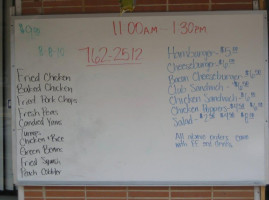 11:00AM - 1:30PM
8-8-10
762-2512
Fried Chicken
Baked Chicken
Fried Pork Chops
Fresh Peas
Candied Yams
Turnips
Chicken + Rice
Green Beans
Fried Squash
Peach Cobbler
Hamburger -
Cheeseburger -
Bacon Cheeseburger -
Club Sandwich -
Chicken Sandwich -
Chicken Fingers
Salad -
All above orders come
with FF and Drink